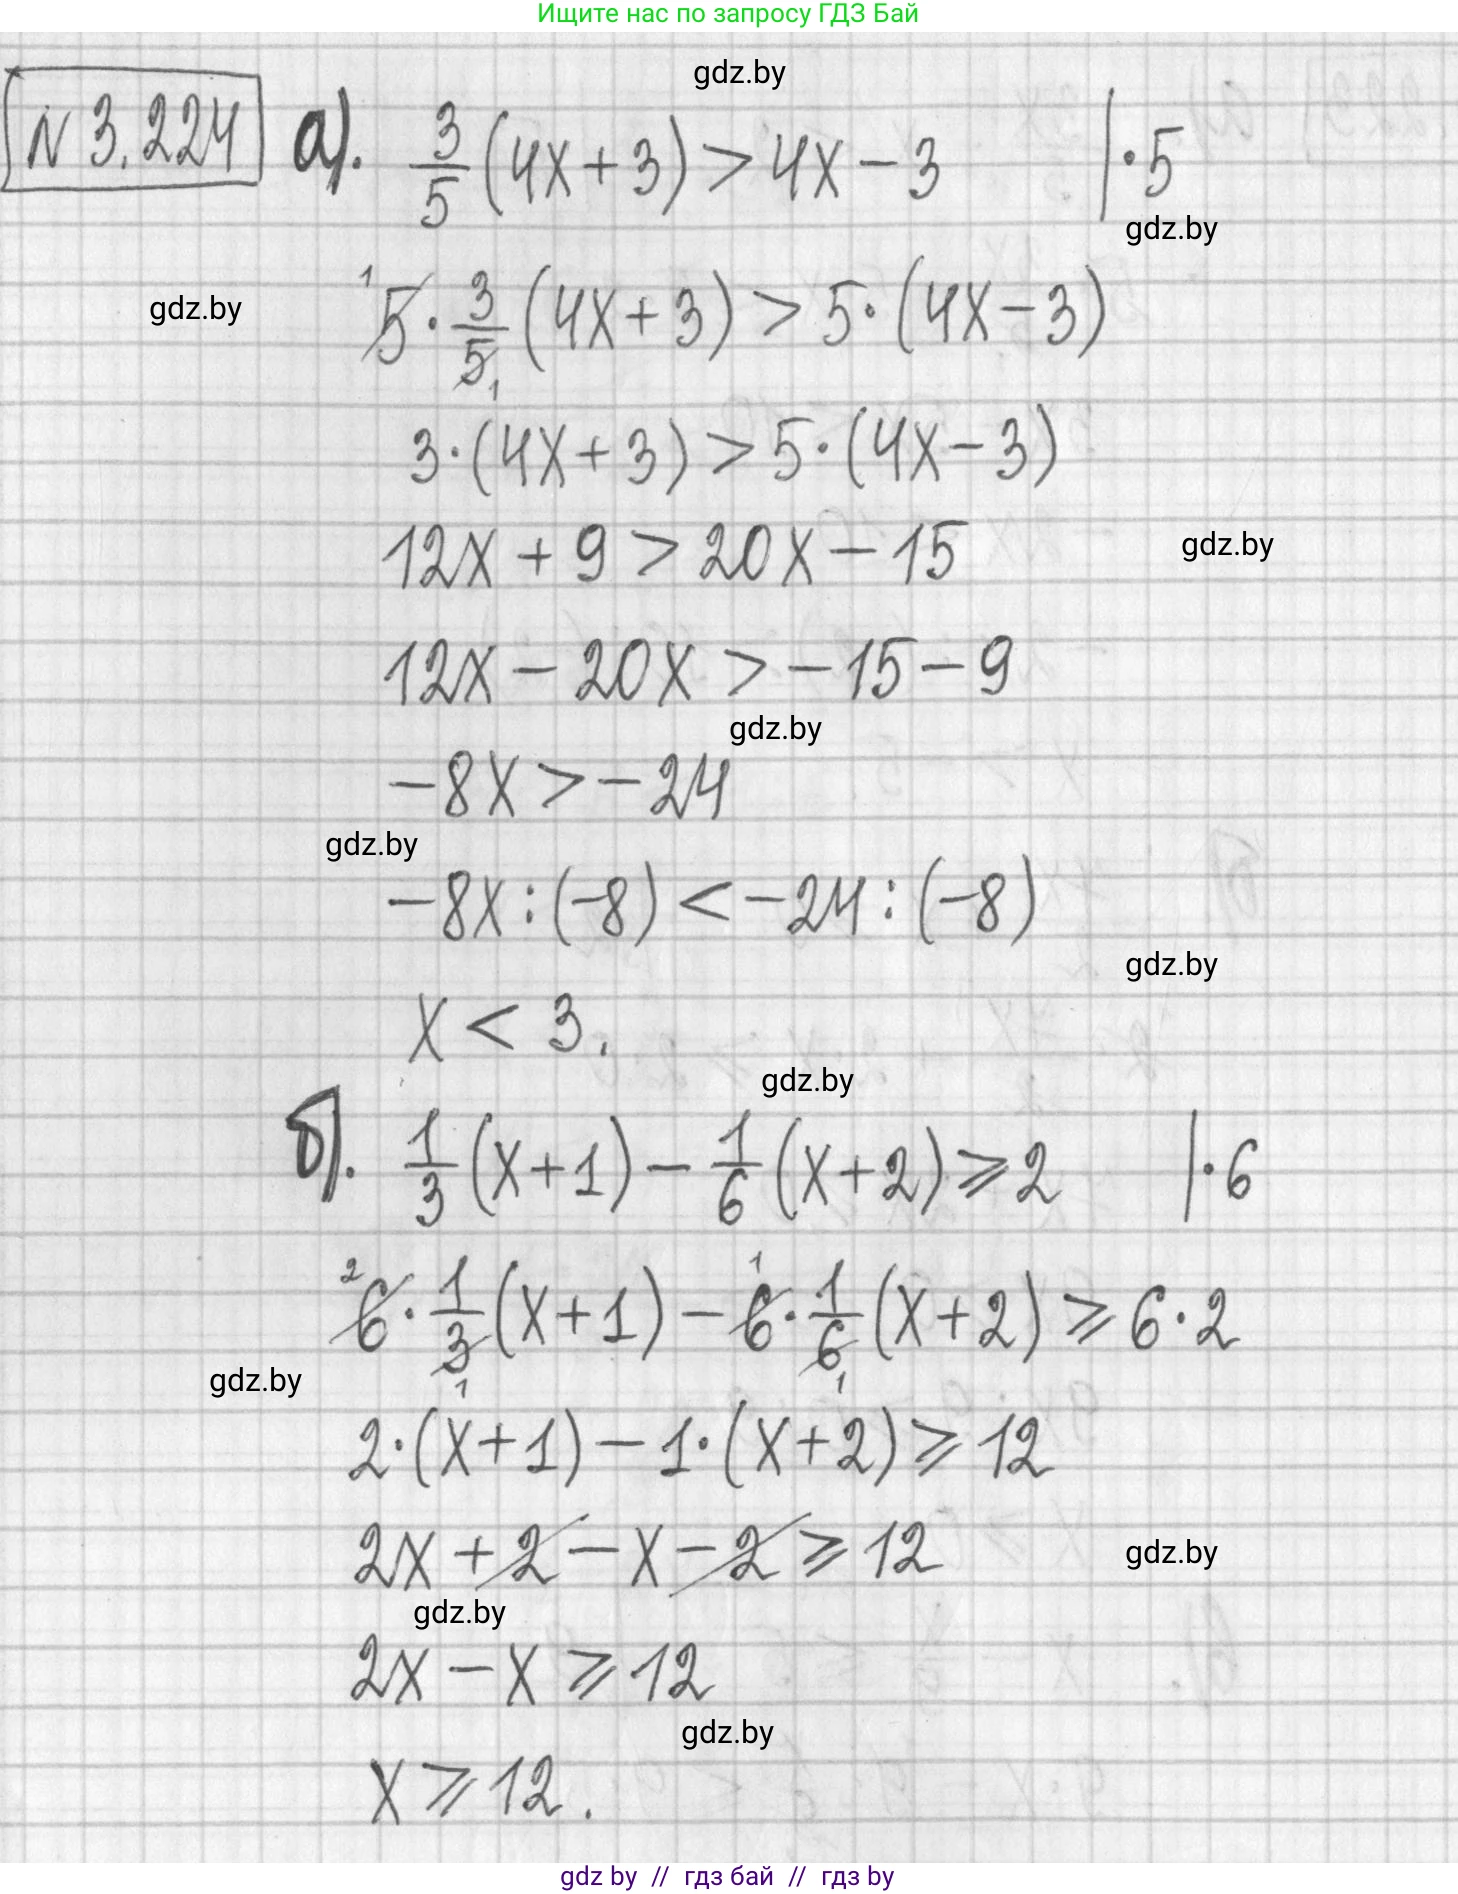 Ищите нас по запросу ГДЗ Бай
gdz.by
N 3.224 а). 3/5 (4x + 3) > 4x - 3 | · 5
gdz.by
gdz.by
¹5 · 3/5₁ (4x + 3) > 5 · (4x - 3)
3 · (4x + 3) > 5 · (4x - 3)
12x + 9 > 20x - 15
gdz.by
12x - 20x > -15 - 9
gdz.by
-8x > -24
gdz.by
-8x : (-8) < -24 : (-8)
gdz.by
x < 3.
gdz.by
б). 1/3 (x + 1) - 1/6 (x + 2) ⩾ 2 | · 6
²6 · 1/3₁ (x + 1) - ¹6 · 1/6₁ (x + 2) ⩾ 6 · 2
gdz.by
2 · (x + 1) - 1 · (x + 2) ⩾ 12
2x + 2 - x - 2 ⩾ 12
gdz.by
gdz.by
2x - x ⩾ 12
gdz.by
x ⩾ 12.
gdz by // гдз бай // гдз by